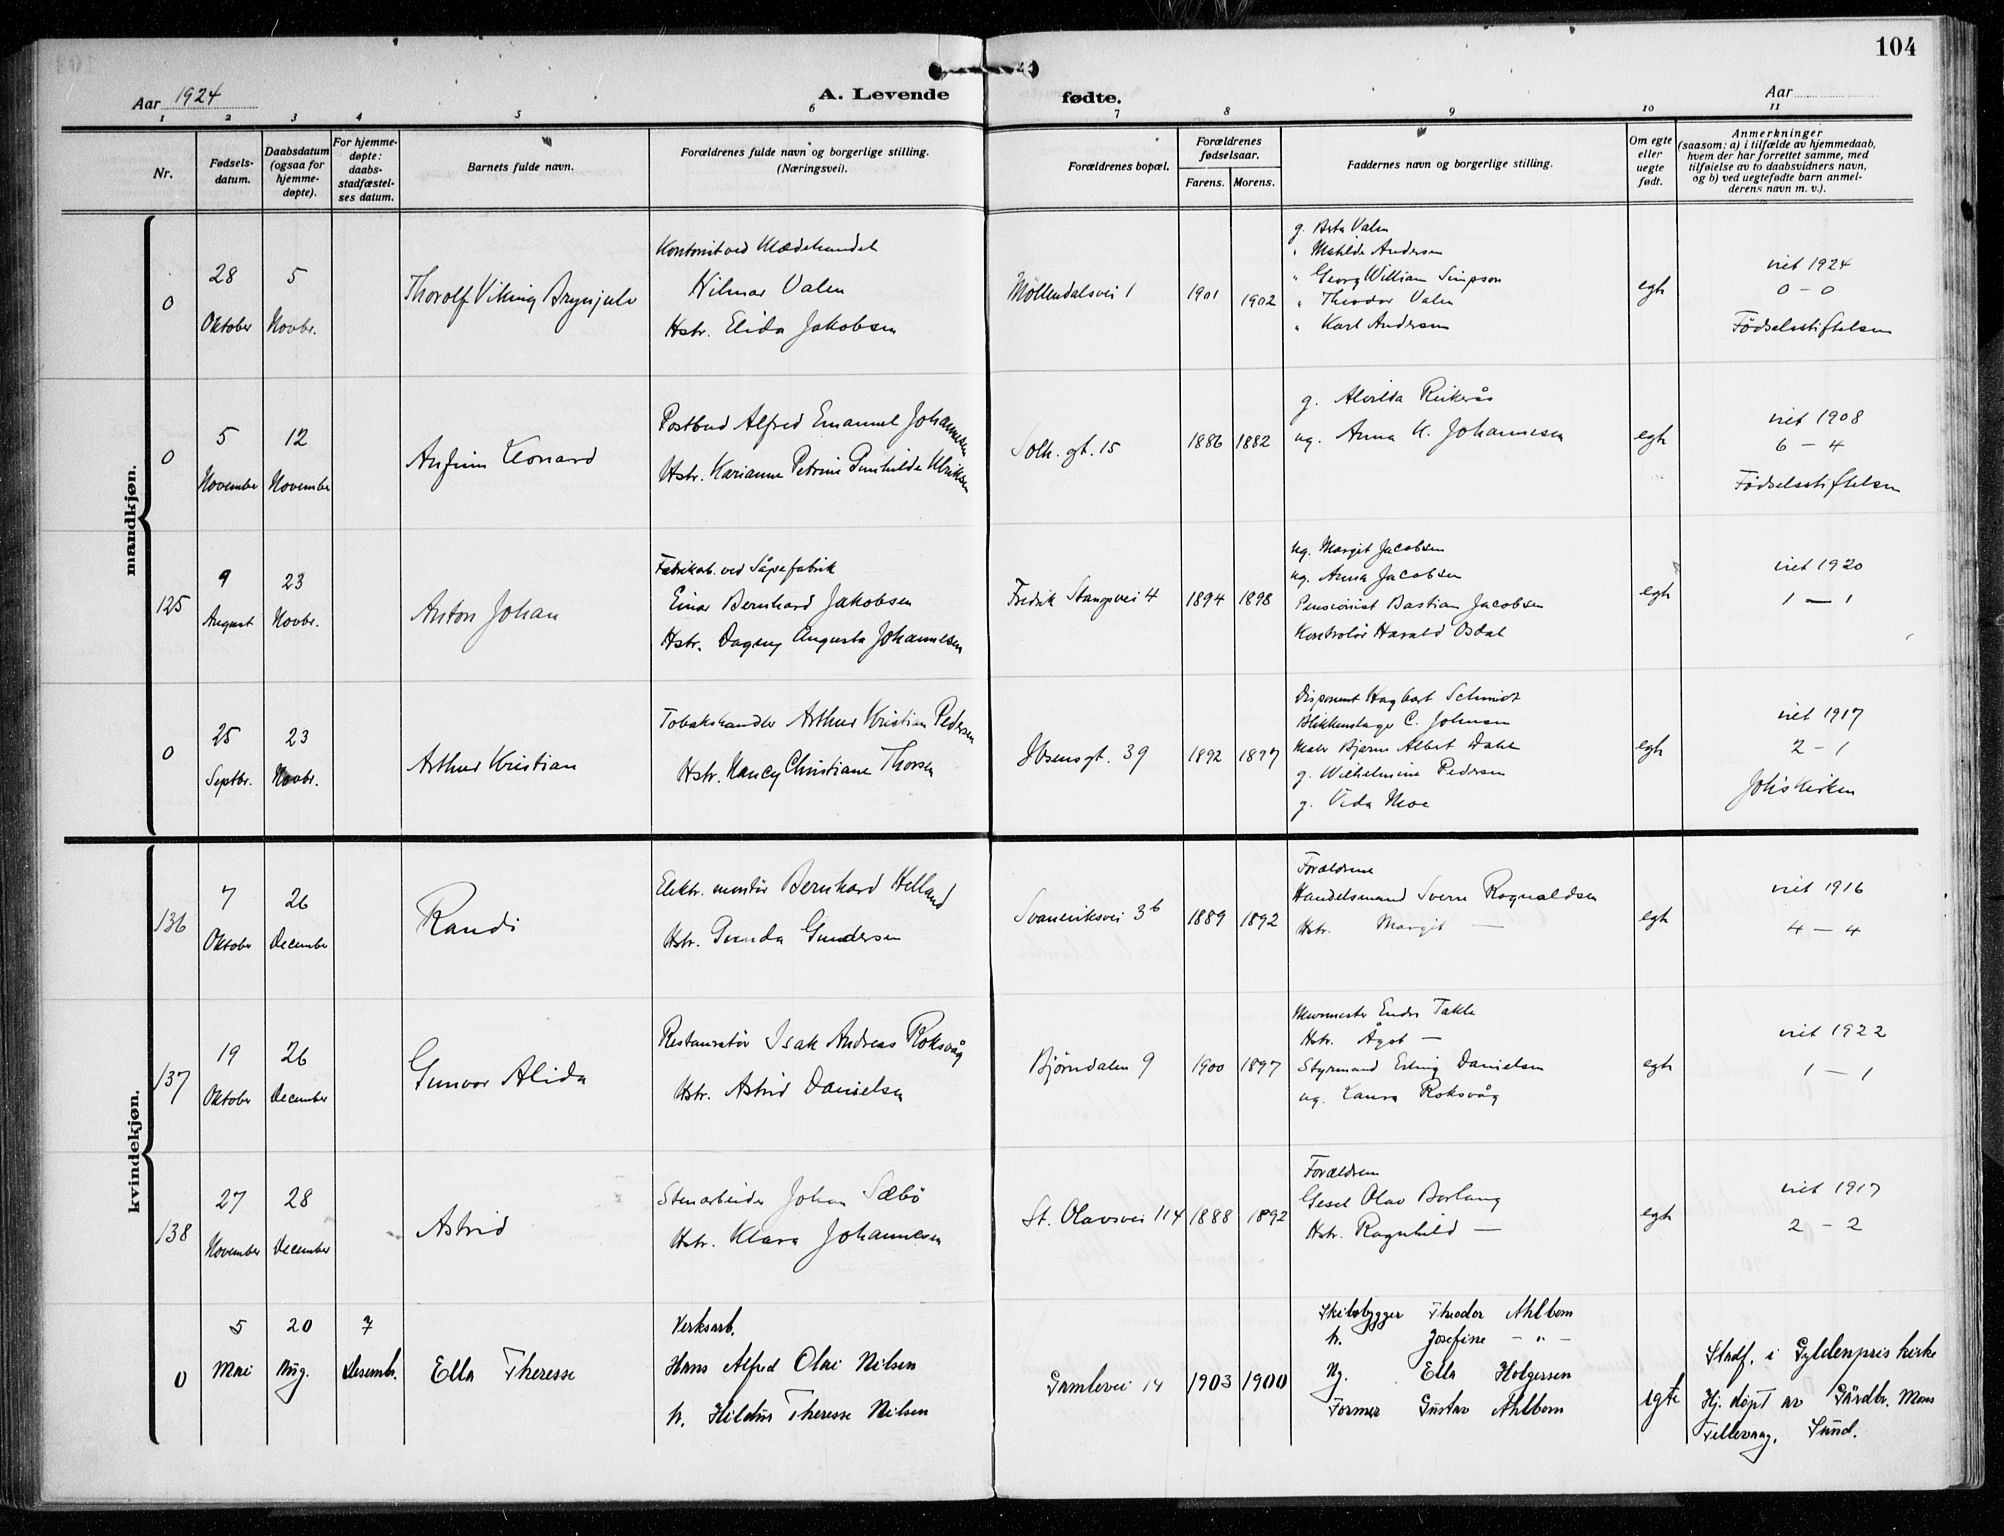 104
Aar 1924
A. Levende
fødte.
Aar
1 2 3 4 5 6 7 8 9 10 11
Nr.
Fødsels-
datum.
Daabsdatum
(ogsaa for
hjemme-
døpte).
For hjemme-
døpte:
daabs-
stadfæstel-
ses datum.
Barnets fulde navn.
Forældrenes fulde navn og borgerlige stilling.
(Næringsvei).
Forældrenes bopæl.
Forældrenes
fødselsaar.
Farens. Morens.
Faddernes navn og borgerlige stilling.
Om egte
eller
uegte
født.
Anmerkninger
(saasom: a) i tilfælde av hjemmedaab,
hvem der har forrettet samme, med
tilføielse av to daabsvidners navn,
og b) ved uegtefødte barn anmel-
derens navn m. v.).
mandkjøn.
0
28
Oktober
5
Novbr.
Thorolf Viking Brynjulv
Kontorist ved
Hilmar Valen
Hstr. Elida Jakobsen
Möllendalsvei 1
1901
1902
g. Berta Valen
" Mathilde Andersen
" Georg William Simpson
" Theodor Valen
" Karl Andersen
egt
viet 1924
0 – 0
Födselsstiftelsen
0
5
November
12
November
Anfinn Leonard
Postbud Alfred Emanuel Johannesen
Hstr. Karianne Petrine Gunhilde Ulriksen
Solh. gt. 15
1886
1882
g. Alvilda
ug. Anna K. Johannesen
egt
viet 1908
6 – 4
Födselsstiftelsen
125
9
August
23
Novbr.
Anton Johan
Fabrikarb. ved Såpefabrik
Einar Bernhard Jakobsen
Hstr. Dagny Augusta Johannesen
Fredrik Stangsvei 4
1894
1898
ug. Margit Jacobsen
ug. Anna Jacobsen
Pensionist Bastian Jacobsen
Kontrolör Harald Osdal
egt
viet 1920
1 – 1
0
25
Septbr.
23
Novbr.
Arthur Kristian
Tobakshandler Arthur Kristian Pedersen
Hstr. Nancy Christiane Thorsen
Ibsensgt. 39
1892
1897
Disponent Hagbart Schmidt
Blikkenslager C. Johnsen
Maler Bjarne Albert Dahl
g. Wilhelmine Pedersen
g. Vida Moe
egt
viet 1917
2 – 1
Joh's kirken
kvindekjøn.
136
7
Oktober
26
December
Randi
Elektr. montör Bernhard Helland
Hstr. Gunda Gundersen
Svaneviksvei 3b
1889
1892
Forældrene
Handelsmand Sverre Rognaldsen
Hstr. Margit —
egt
viet 1916
4 – 4
137
19
Oktober
26
December
Gunvor Alida
Restauratör Isak Andreas Roksvåg
Hstr. Astrid Danielsen
Björndalen 9
1900
1897
Murmester Endre Takle
Hstr. Ågot —
Styrmand Erling Danielsen
ug. Laura Roksvåg
egt
viet 1922
1 – 1
138
27
November
28
December
Astrid
Stenarbeider Johan Sæbö
Hstr. Klara Johannesen
St. Olavsvei 114
1888
1892
Forældrene
Gesel Olav
Hstr. Ragnhild —
egt
viet 1917
2 – 2
0
5
Mai
20
Aug.
7
Desembr.
Ella Theresse
Verksarb.
Hans Alfred Olai Nilsen
h. Hildur Theresse Nilsen
Gamlevei 14
1903
1900
Skibsbygger Theodor Ahlbom
h. Josefine – " –
Ug. Ella Holgersen
Former Gustav Ahlbom
egte
Stadf. i Gyldenpris kirke
Hj. døpt av Gårdbr. Mons
Tellevaag, Sund.